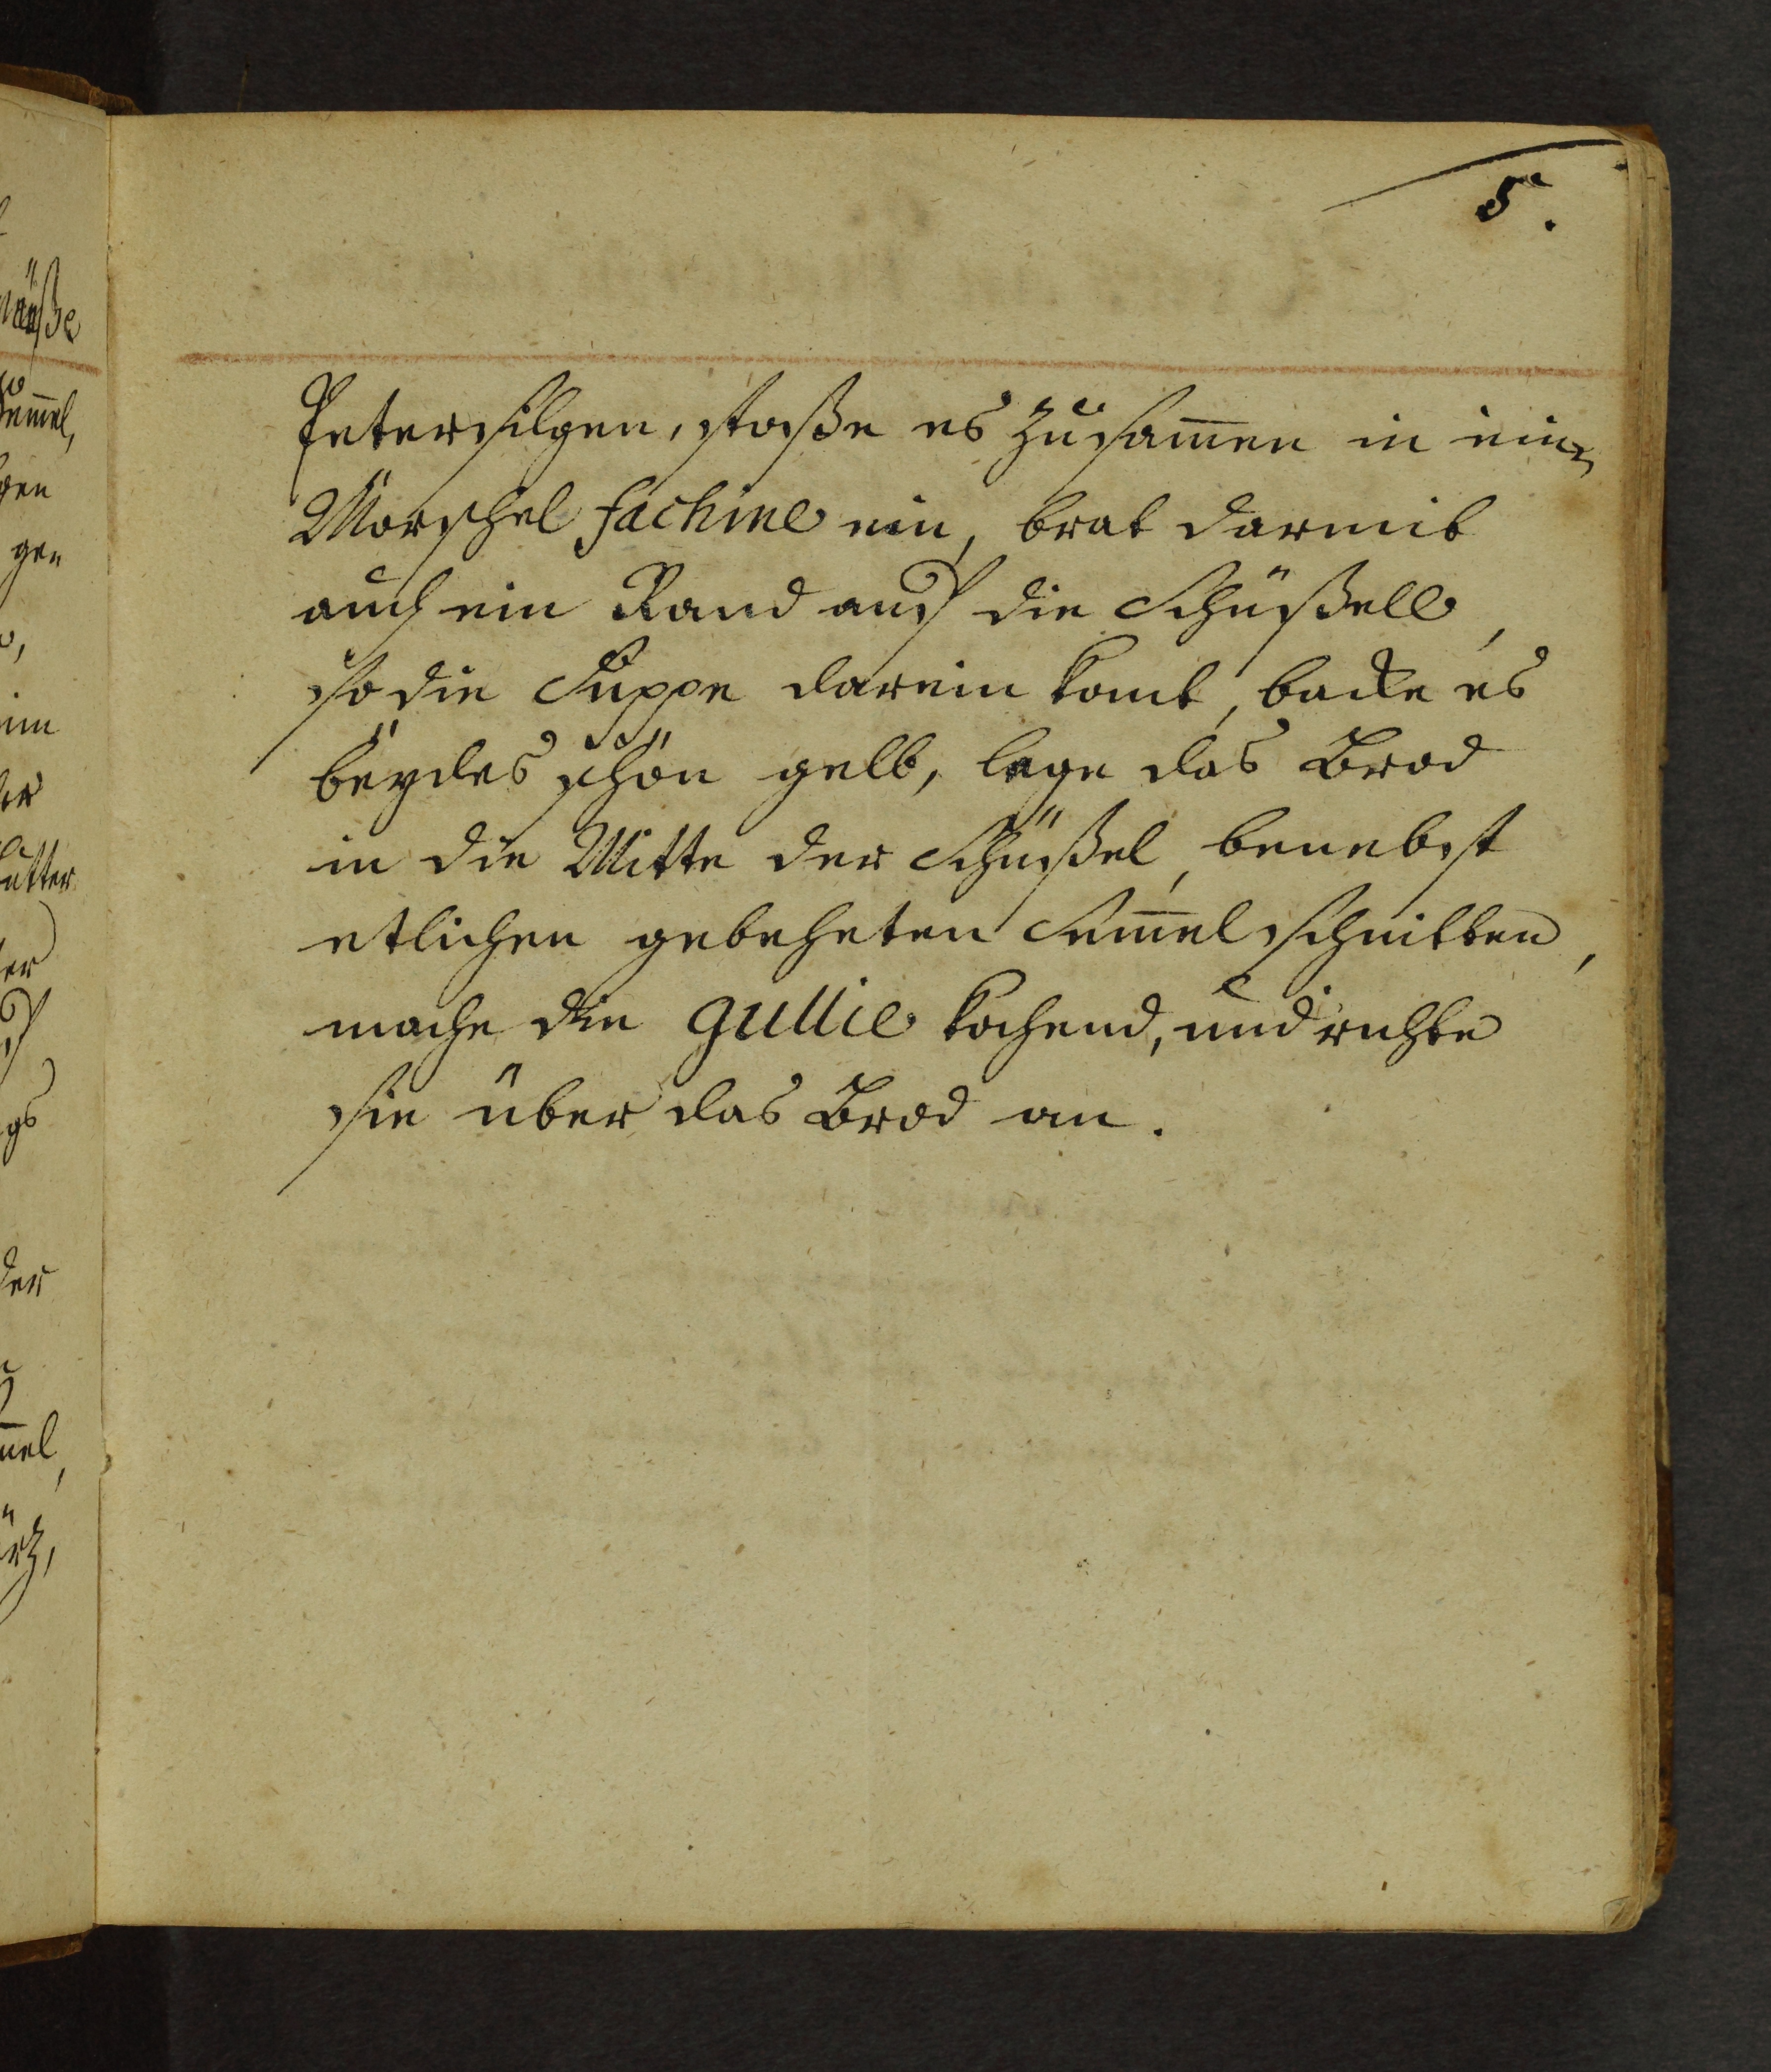 5.
Petersilgen, stoße es zusam̄en in ein
Mörschel fachine ein, brat darmit
auch ein Rand auf die Schüßell,
so die Suppe darein komt, backe es
beÿdes schön gelb, lege das Brod
in die Mitte der Schüßel, benebst
etlichen gebeheten Sem̄elschnitten,
mache die gullie kochend, und richte
sie über das Brod an.